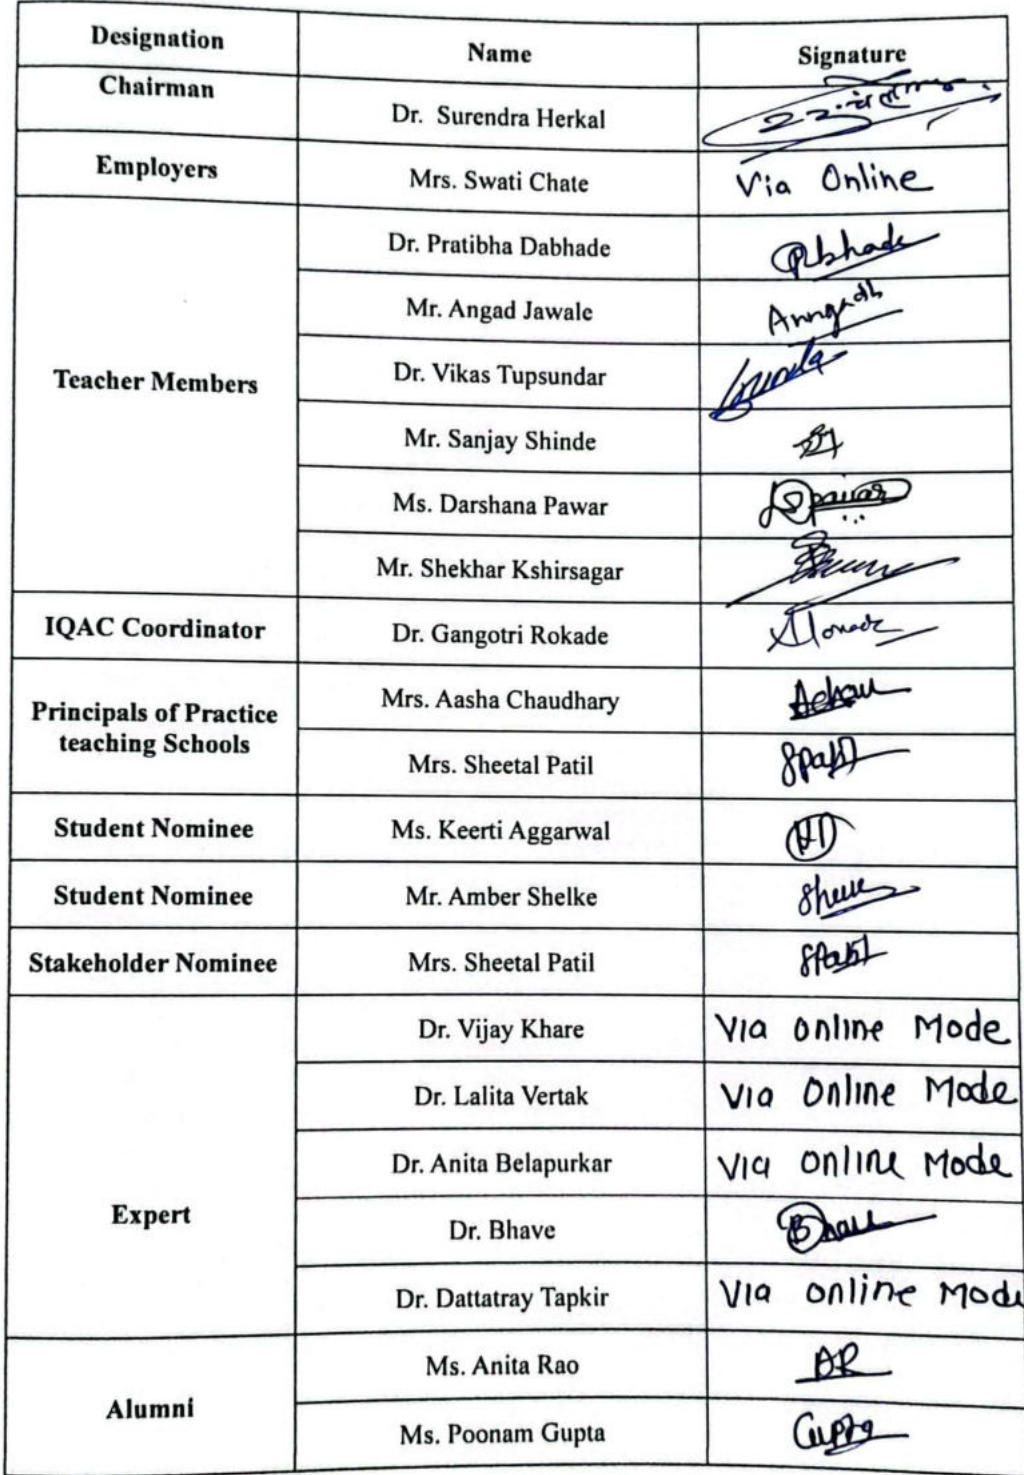 Designation Name Signature
Chairman Dr. Surendra Herkal
Employers Mrs. Swati Chate Via Online
Teacher Members
Dr. Pratibha Dabhade
Mr. Angad Jawale
Dr. Vikas Tupsundar
Mr. Sanjay Shinde
Ms. Darshana Pawar
Mr. Shekhar Kshirsagar
IQAC Coordinator Dr. Gangotri Rokade
Principals of Practice
teaching Schools
Mrs. Aasha Chaudhary
Mrs. Sheetal Patil
Student Nominee Ms. Keerti Aggarwal
Student Nominee Mr. Amber Shelke
Stakeholder Nominee Mrs. Sheetal Patil
Expert
Dr. Vijay Khare Via online Mode
Dr. Lalita Vertak Via Online Mode
Dr. Anita Belapurkar Via online Mode
Dr. Bhave
Dr. Dattatray Tapkir Via online Mode
Alumni
Ms. Anita Rao AR
Ms. Poonam Gupta Gupta